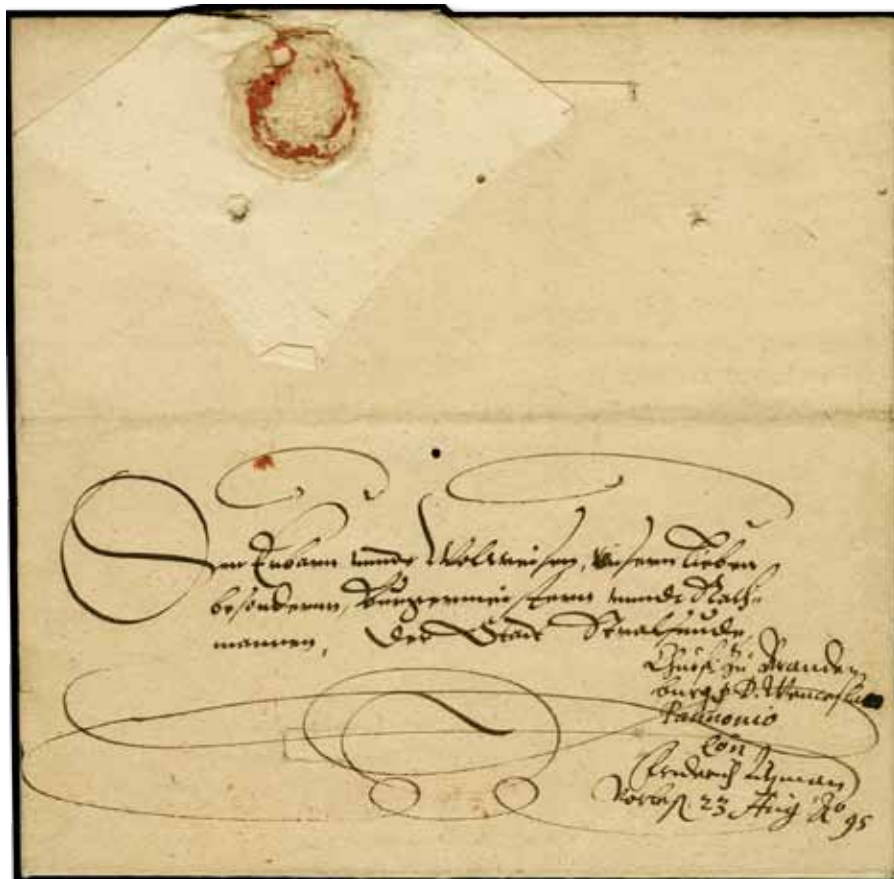 Den Erbarn unnde Wolweisen, Unsern lieben
besondernn, Burgermeistern unnde Rath-
mannen, der Stadt Stralsunde,
Churf. zu Branden
burgk D.
Pannonio
Friderich
23 Aug Ao 95